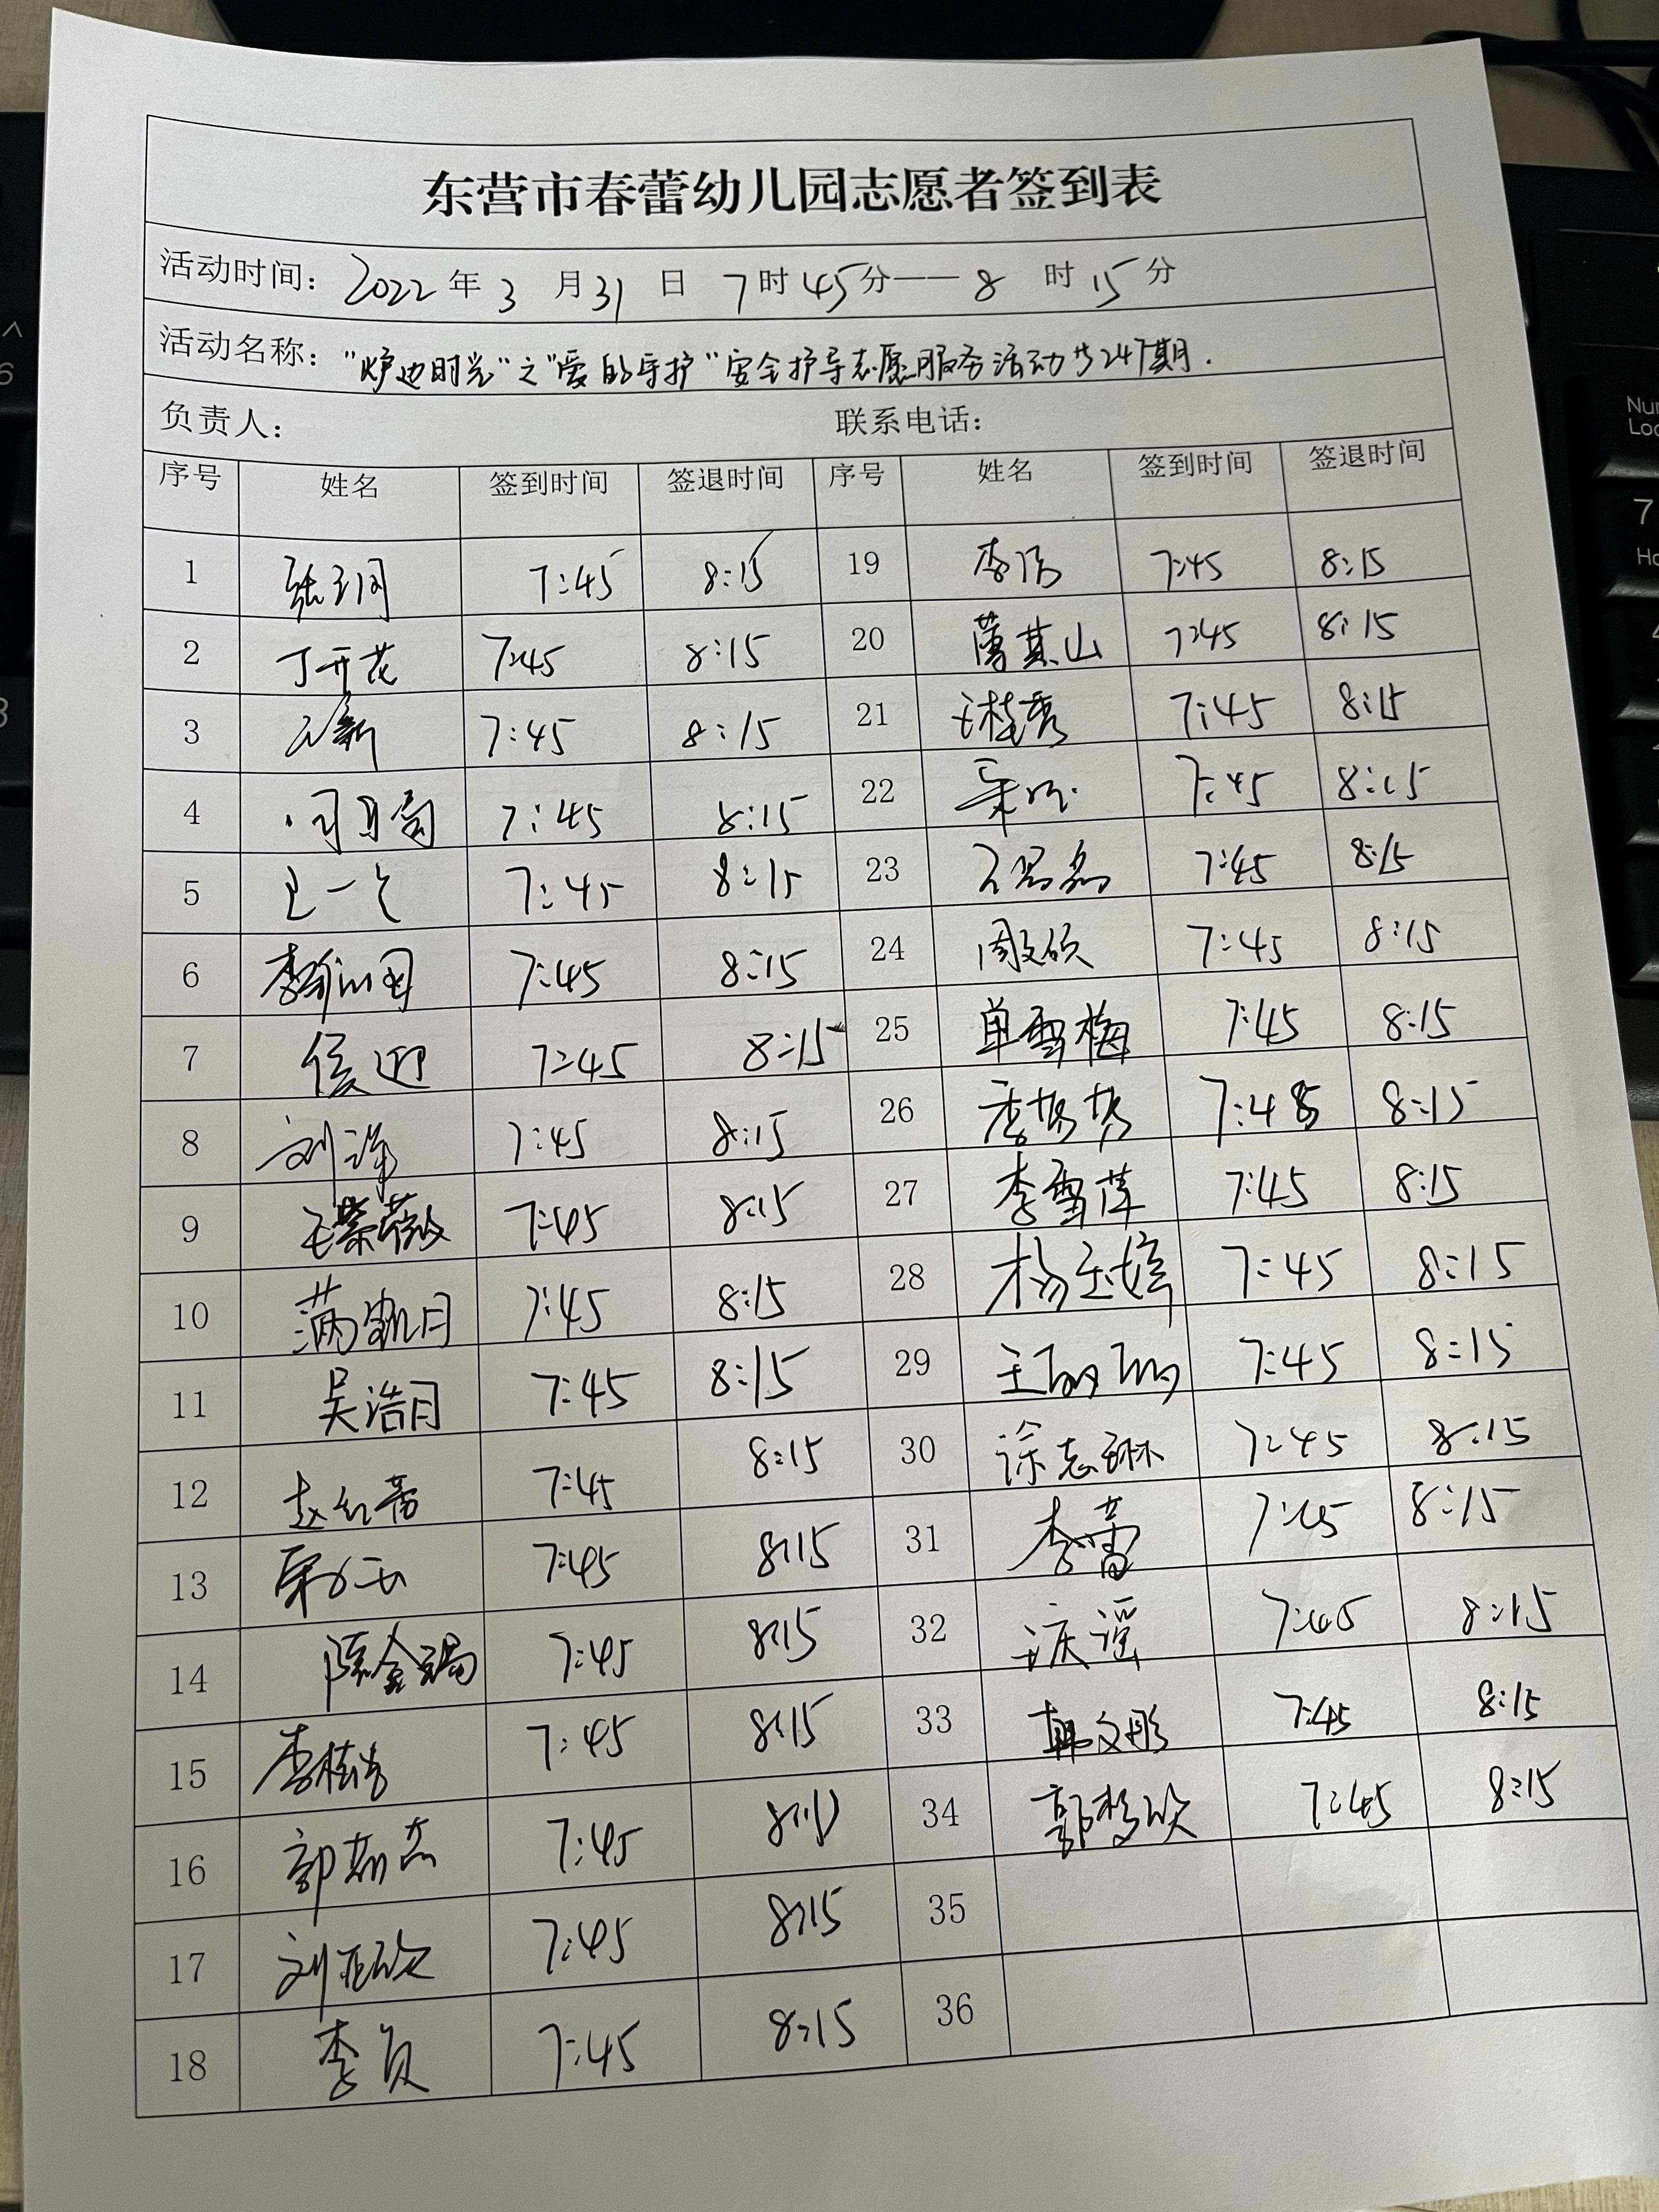 东营市春蕾幼儿园志愿者签到表
活动时间：2022年3月31日7时45分——8时15分
活动名称："炉边时光"之"爱的守护"安全护导志愿服务活动第247期.
负责人： 联系电话：
序号 姓名 签到时间 签退时间 序号 姓名 签到时间 签退时间
1 7:45 8:15 19 7:45 8:15
2 丁开花 7:45 8:15 20 7:45 8:15
3 7:45 8:15 21 王桂秀 7:45 8:15
4 7:45 8:15 22 7:45 8:15
5 7:45 8:15 23 7:45 8:15
6 7:45 8:15 24 7:45 8:15
7 侯迎 7:45 8:15 25 单雪梅 7:45 8:15
8 7:45 8:15 26 7:45 8:15
9 王紫薇 7:45 8:15 27 李雪萍 7:45 8:15
10 7:45 8:15 28 杨玉婷 7:45 8:15
11 吴浩月 7:45 8:15 29 王丽丽 7:45 8:15
12 赵红蕾 7:45 8:15 30 徐志琳 7:45 8:15
13 7:45 8:15 31 李蕾 7:45 8:15
14 7:45 8:15 32 7:45 8:15
15 7:45 8:15 33 韩文彤 7:45 8:15
16 7:45 8:15 34 郭梦欣 7:45 8:15
17 7:45 8:15 35
18 7:45 8:15 36